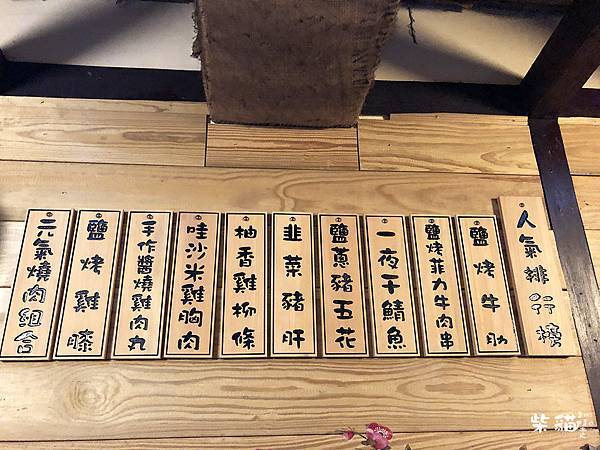 人氣排行榜
鹽烤牛肋
鹽烤菲力牛肉串
一夜干鯖魚
鹽蔥豬五花
韭菜豬肝
柚香雞柳條
哇沙米雞胸肉
手作醬燒雞肉丸
鹽烤雞膝
元氣燒肉組合
柴貓